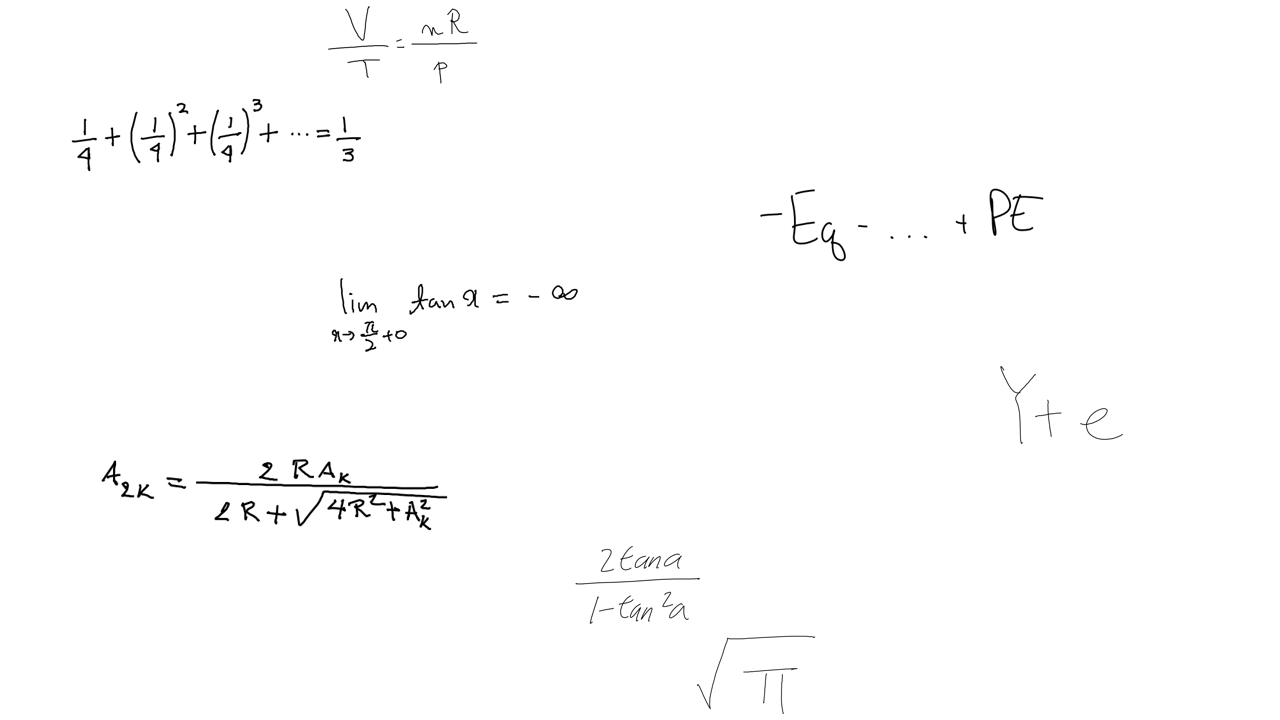 \frac{V}{T} = \frac{nR}{p}
\frac{1}{4} + \left(\frac{1}{4}\right)^2 + \left(\frac{1}{4}\right)^3 + \cdots = \frac{1}{3}
-Eq - \ldots + PE
\lim_{x \to \frac{\pi}{2}+0} \tan x = -\infty
Y + e
A_{2K} = \frac{2RA_K}{2R + \sqrt{4R^2 + A_K^2}}
\frac{2\tan a}{1 - \tan^2 a}
\sqrt{\pi}